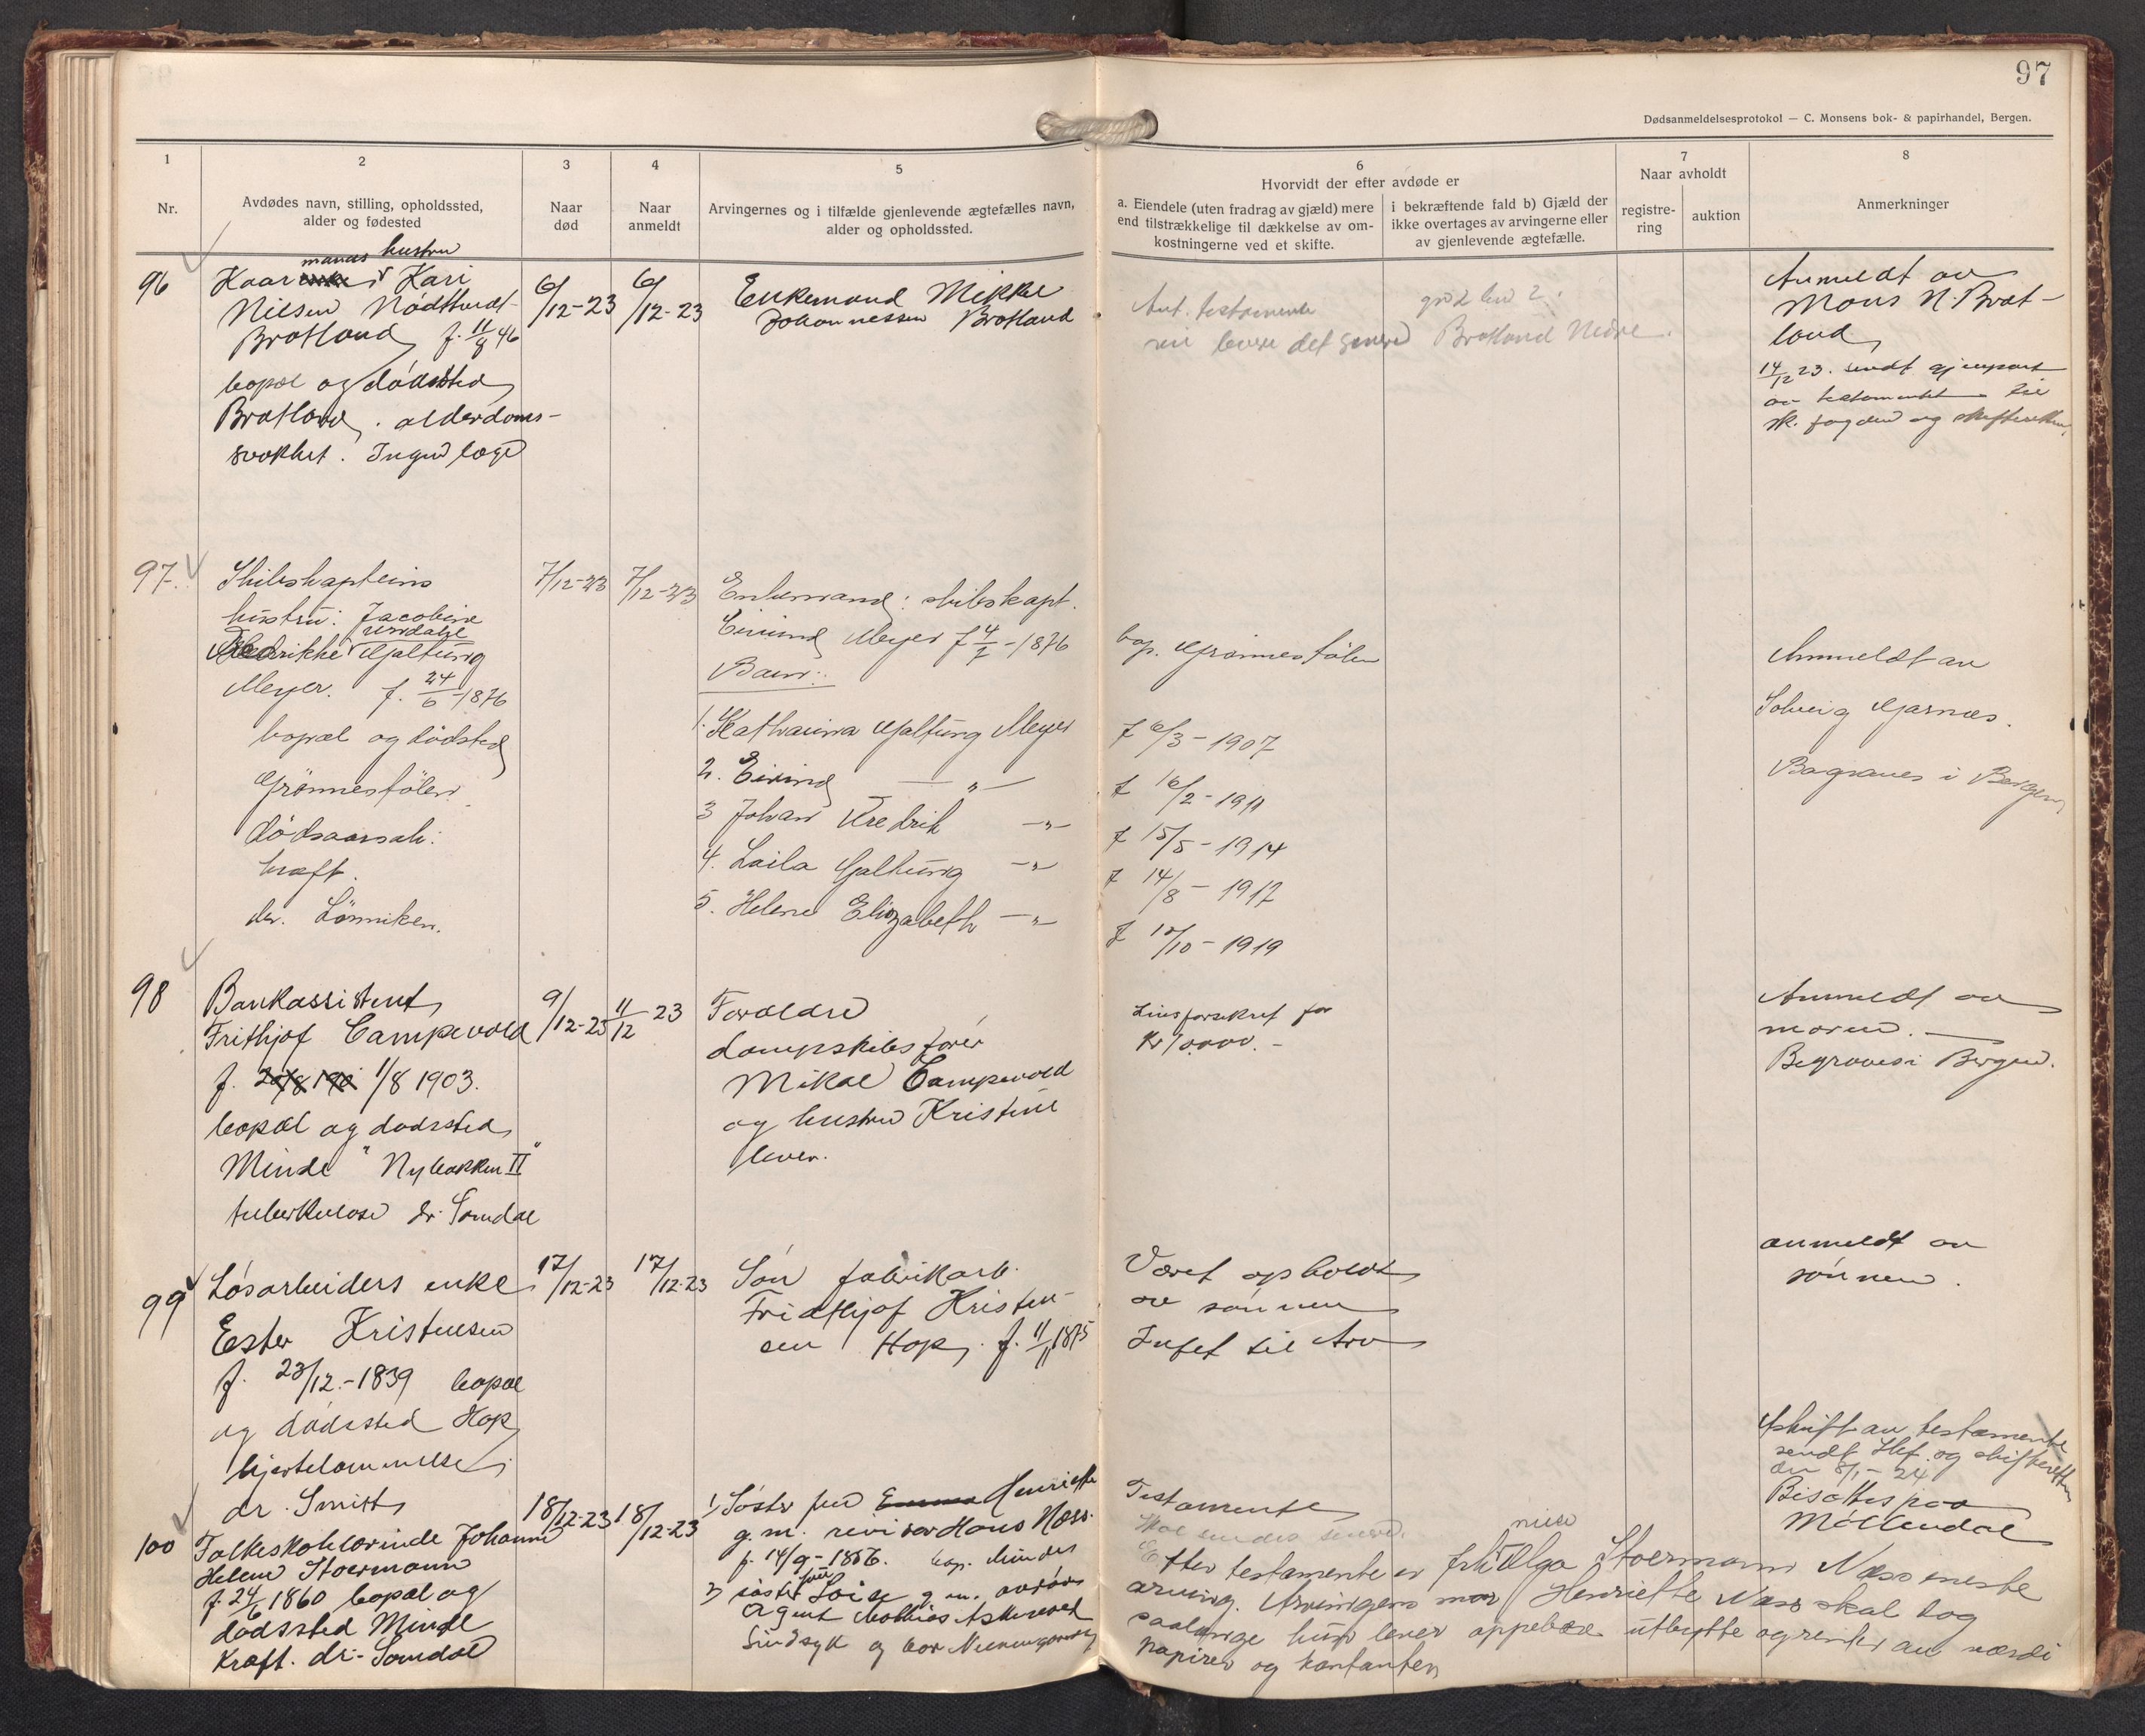 97
Dødsanmeldelsesprotokol — C. Monsens bok- & papirhandel, Bergen.
1
Nr.
2
Avdødes navn, stilling, opholdssted,
alder og fødested
3
Naar
død
4
Naar
anmeldt
5
Arvingernes og i tilfælde gjenlevende ægtefælles navn,
alder og opholdssted.
6
Hvorvidt der efter avdøde er
a. Eiendele (uten fradrag av gjæld) mere
end tilstrækkelige til dækkelse av om-
kostningerne ved et skifte.
i bekræftende fald b) Gjæld der
ikke overtages av arvingerne eller
av gjenlevende ægtefælle.
7
Naar avholdt
registre-
ring
auktion
8
Anmerkninger
96
mands hustru
Kaar Kari
Nilsen Nødtvedt
Bratland f. 11/8 46
bopæl og dødssted
Bratland. alderdoms-
svakhet. Ingen læge
6/12-23
6/12-23
Enkemand Mikkel
Johannessen Bratland
Ant. testamente
vil levere det senere
Bratland Nedre.
Anmeldt av
Mons N. Brat-
land
14/12 23. sendt gjenpart
av testamentet til
sk. fogden og skifteretten
97.
Skibskapteins
hustru: Jacobine
Fredrikke Galtung
Meyer. f. 24/6-1876
bopæl og dødssted
Grønnestølen
dødsaarsak:
kræft.
dr. Lönniken.
7/12-23
7/12-23
Enkemand: skibskapt.
Eivind Meyer f 4/7-1876
Barn:
1. Katharina Galtung Meyer
2. Eivind — " —
3 Johan Fredrik — " —
4. Laila Galtung — " —
5. Helene Elizabeth — " —
bop. Grønnestølen
f 6/3-1907
f 16/2-1911
f 15/5-1914
f 14/8-1917
f 10/10-1919
Anmeldt av
Solveig Garnæs.
Begraves i Bergen
98
Bankassistent
Frithjof Campevold
f. 1/8 1903.
bopæl og dødssted
Minde "Nybakken II"
tuberkulose dr. Somdal
9/12-23
11/12 23
Forældre
dampskibsfører
Mikal Campevold
og hustru Kristine
lever.
Livsforsikret for
Kr 10000.-
Anmeldt av
moren. —
Begraves i Bergen.
99
Løsarbeiders enke
Ester Kristensen
f. 23/12.-1839 bopæl
og dødssted Hop
hjertelammelse
dr. Smith
17/12-23
17/12-23
Søn fabrikarb.
Fridthjof Kristen-
sen Hop. f. 11/11 1875
Været opholdt
av sønnen
Intet til Arv
anmeldt av
sønnen.
100
Folkeskolelærinde Johanne
Helene Stoermann
f. 24/6 1860 bopæl og
dødssted Minde
Kræft. dr. Somdal
18/12-23
18/12-23
1) Søster fru Emma Henriette
g. m. revisor Hans Næss.
f. 14/9-1856. bop. Minde
2) søster fru Loise g. m. avdøde
agent Mathias Askevold
Sindsyk og bor Neevengaarden
Testamente
skal sendes senere.
niese
Efter testamente er frk. Olga Stoermann Næss eneste
arving. Arvingens mor Henriette Næss skal dog
saalænge hun lever oppebære utbytte og renter av værdi
papirer og kontanter
Avskrift av testamente
sendt Skf. og skifteretten
den 8/1-24
Bisættes paa
Møllendal